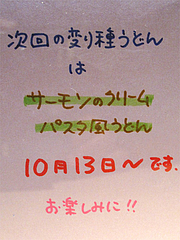 次回の変り種うどん
は
サーモンのクリーム
パスタ風うどん
10月13日〜です.
お楽しみに!!